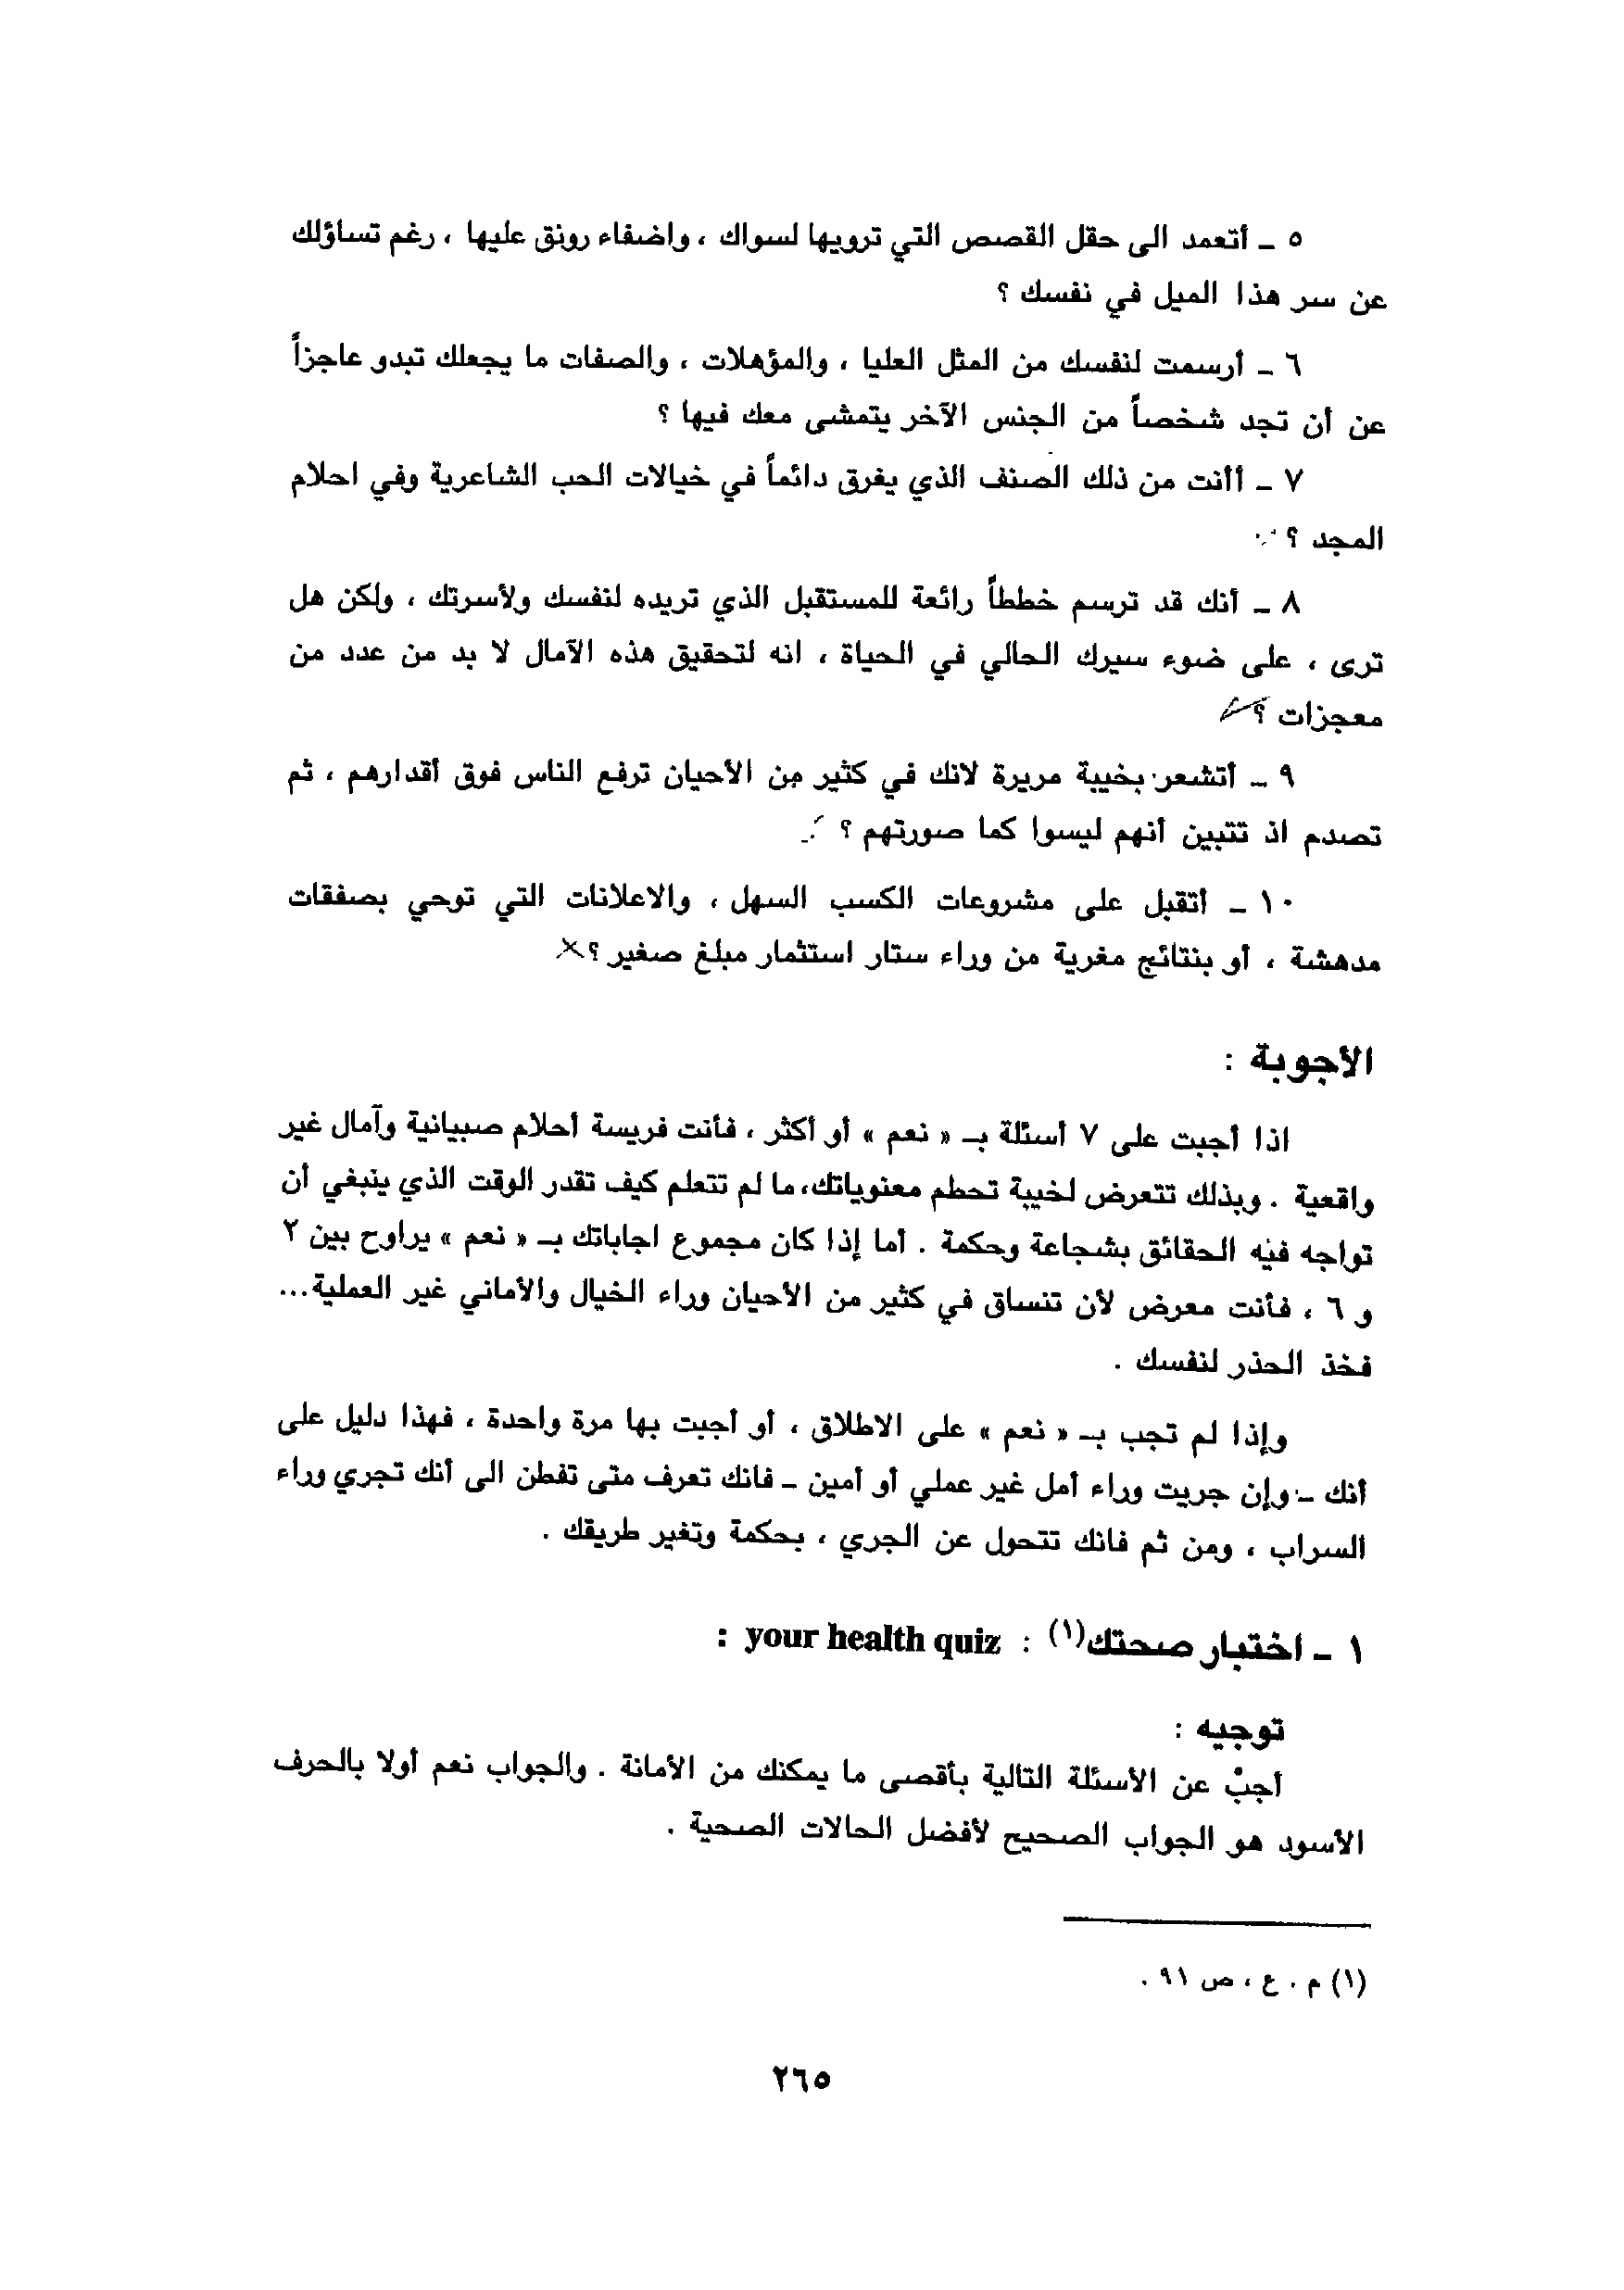 ٥ ـ أتعمد الى حقل القصص التي ترويها لسواك ، واضفاء رونق عليها ، رغم تساؤلك
عن سر هذا الميل في نفسك ؟
٦ ـ أرسمت لنفسك من المثل العليا ، والمؤهلات ، والصفات ما يجعلك تبدو عاجزاً
عن أن تجد شخصاً من الجنس الآخر يتمشى معك فيها ؟
٧ ـ أأنت من ذلك الصنف الذي يغرق دائماً في خيالات الحب الشاعرية وفي احلام
المجد ؟
٨ ـ أنك قد ترسم خططاً رائعة للمستقبل الذي تريده لنفسك ولأسرتك ، ولكن هل
ترى ، على ضوء سيرك الحالي في الحياة ، انه لتحقيق هذه الآمال لا بد من عدد من
معجزات ؟
٩ ـ أتشعر بخيبة مريرة لانك في كثير من الأحيان ترفع الناس فوق أقدارهم ، ثم
تصدم اذ تتبين أنهم ليسوا كما صورتهم ؟
١٠ ـ أتقبل على مشروعات الكسب السهل ، والاعلانات التي توحي بصفقات
مدهشة ، أو بنتائج مغرية من وراء ستار استثمار مبلغ صغير ؟
الأجوبة :
اذا أجبت على ٧ أسئلة بـ « نعم » أو أكثر ، فأنت فريسة أحلام صبيانية وآمال غير
واقعية . وبذلك تتعرض لخيبة تحطم معنوياتك، ما لم تتعلم كيف تقدر الوقت الذي ينبغي أن
تواجه فيه الحقائق بشجاعة وحكمة . أما إذا كان مجموع اجاباتك بـ « نعم » يراوح بين ٢
و ٦ ، فأنت معرض لأن تنساق في كثير من الأحيان وراء الخيال والأماني غير العملية...
فخذ الحذر لنفسك .
وإذا لم تجب بـ « نعم » على الاطلاق ، أو أجبت بها مرة واحدة ، فهذا دليل على
أنك ـ وإن جريت وراء أمل غير عملي أو أمين ـ فانك تعرف متى تفطن الى أنك تجري وراء
السراب ، ومن ثم فانك تتحول عن الجري ، بحكمة وتغير طريقك .
١ ـ اختبار صحتك(١) : your health quiz :
توجيه :
أجبْ عن الأسئلة التالية بأقصى ما يمكنك من الأمانة . والجواب نعم أولا بالحرف
الأسود هو الجواب الصحيح لأفضل الحالات الصحية .
(١) م . ع ، ص ٩١ .
٢٦٥